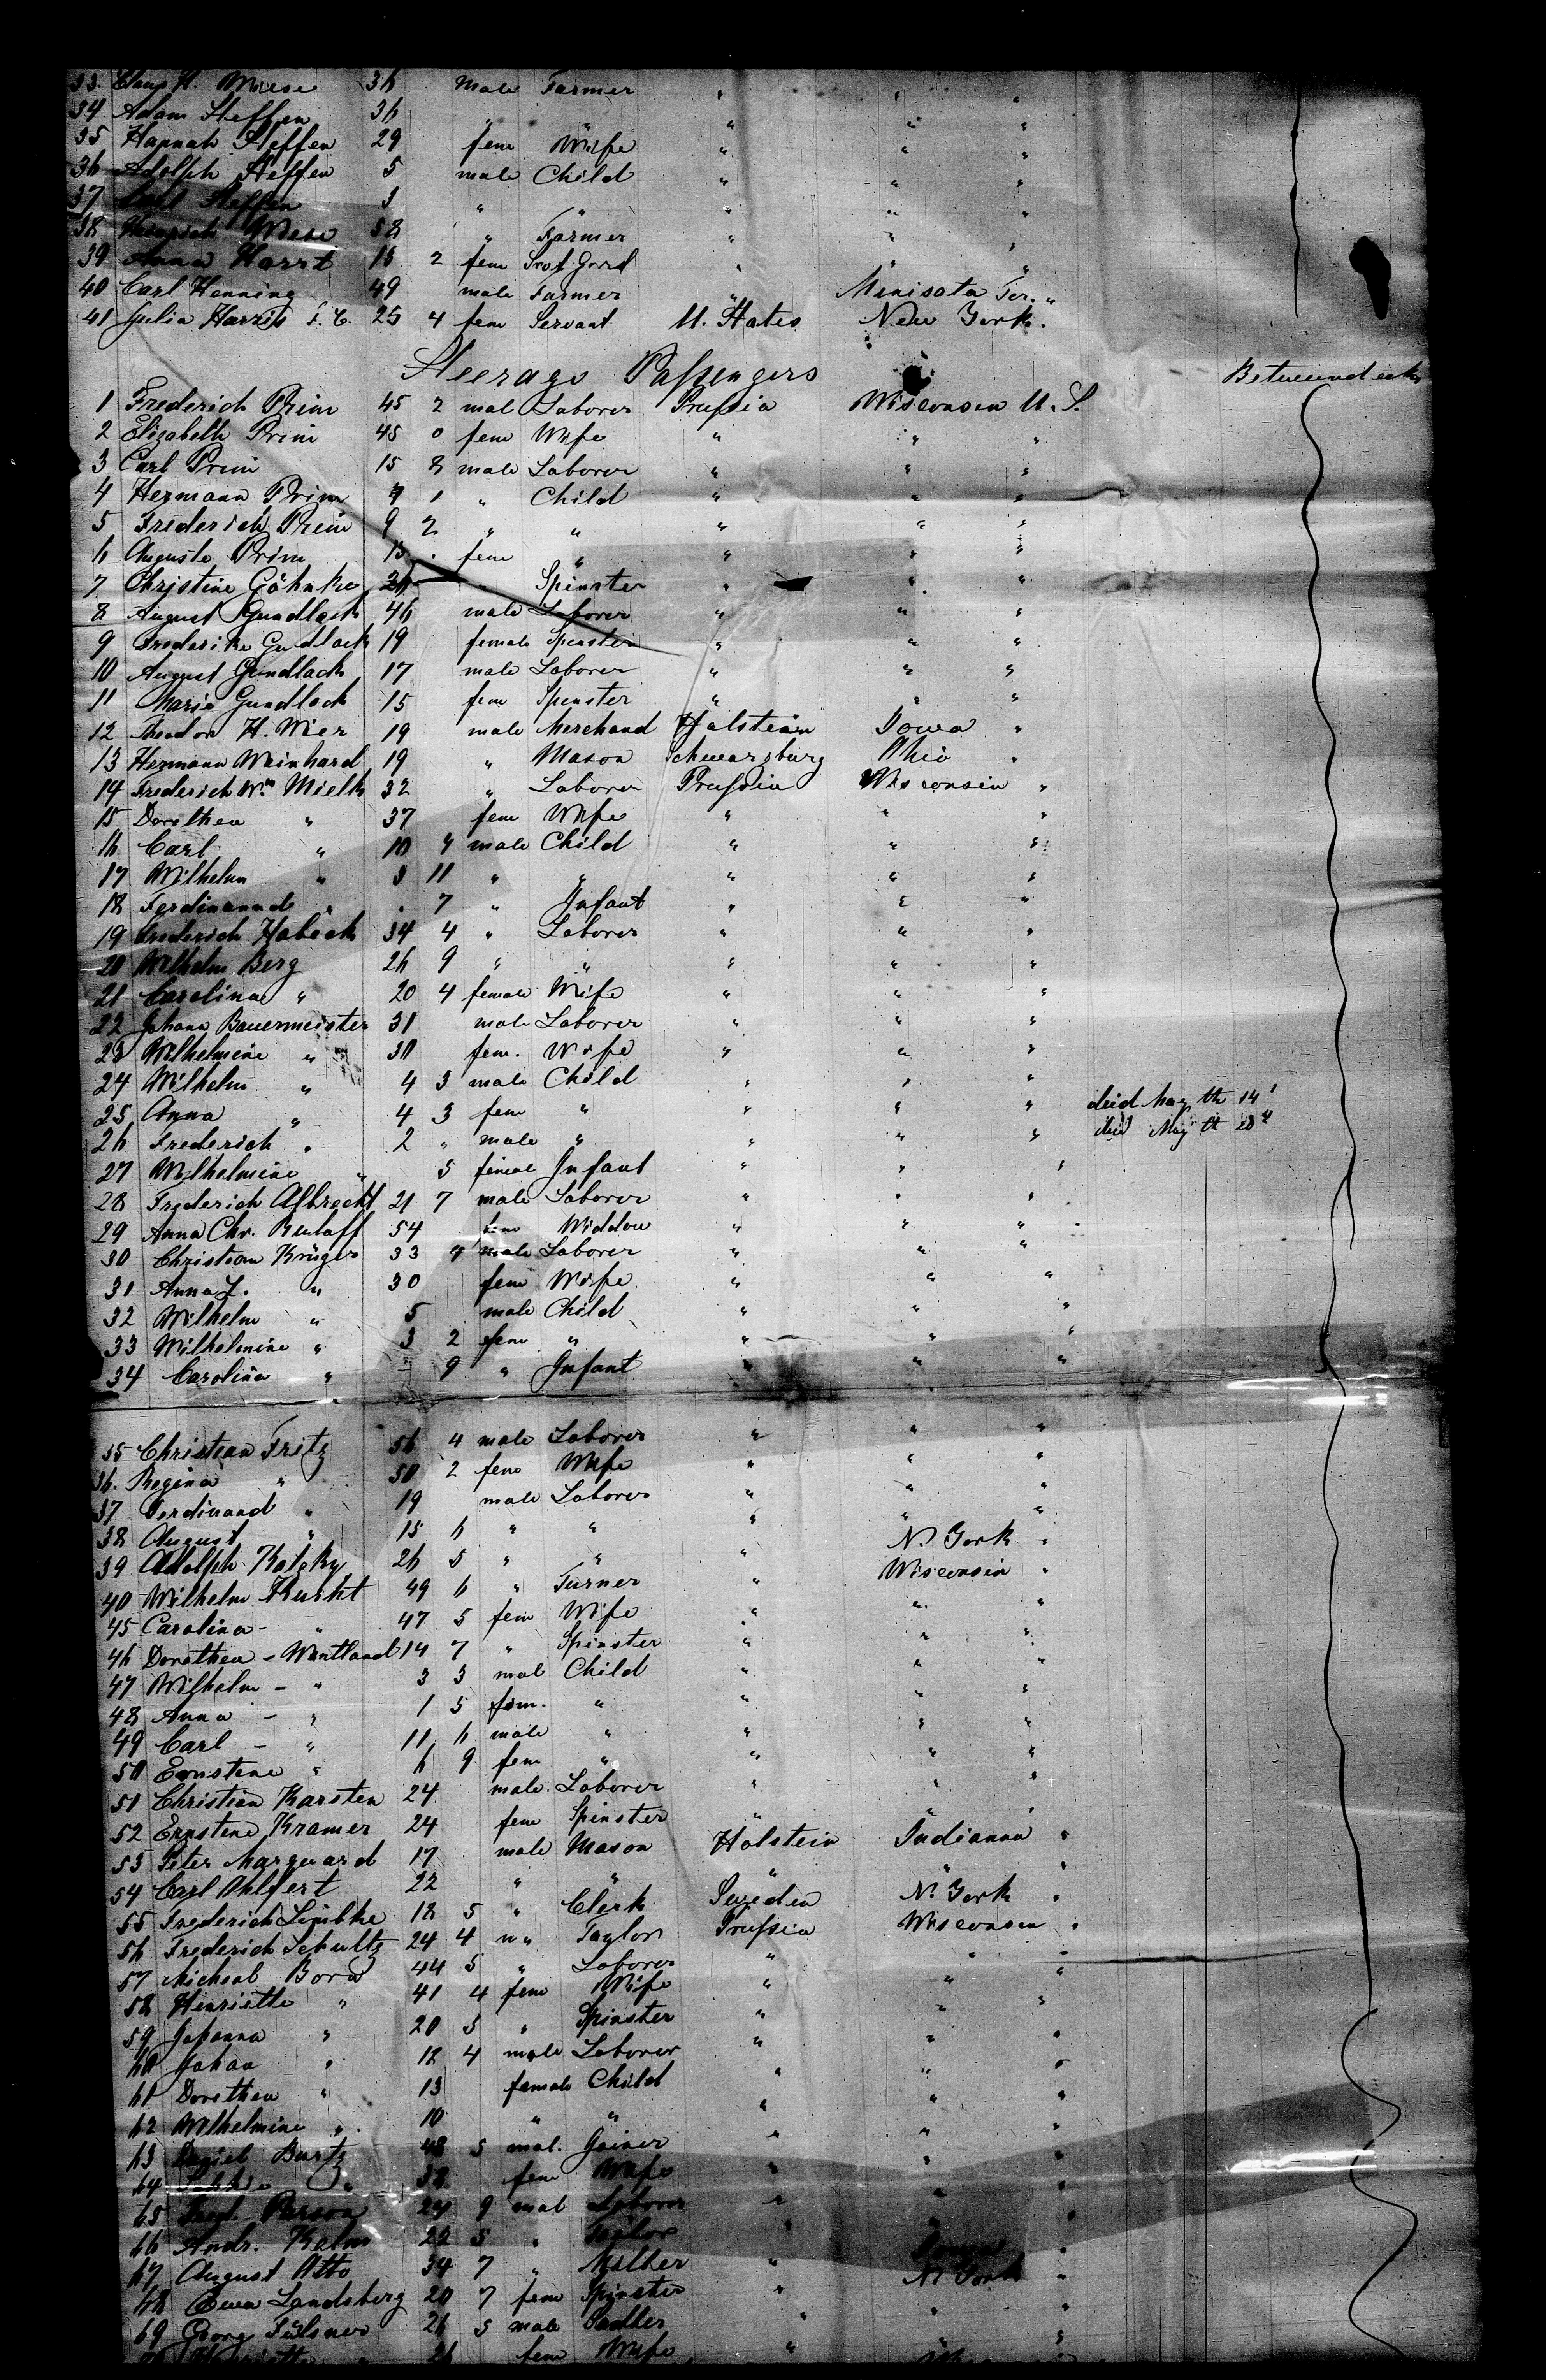 33. Claus H. Wiese 36 Male Farmer " " "
34 Adam Steffen 36 " " " " "
35 Hannah Steffen 29 fem Wife " " "
36 Adolph Steffen 5 male Child " " "
37 Steffen 3 " " " " "
38 Heinrich Wiese 58 " Farmer " " "
39 Anna Harrt 15 2 fem " " "
40 Carl Henning 49 male Farmer " Minisota Ter. "
41 Julia Harris 25 4 fem Servant U. States New York.
Steerage Passengers
1 Frederich Prim 45 2 mal Laborer Prussia Wisconsin U. S.
2 Elizabeth Prim 45 0 fem Wife " " "
3 Carl Prim 15 8 male Laborer " " "
4 Hermann Prim 7 1 " Child " " "
5 Frederich Prim 9 2 " " " " "
6 Auguste Prim 13 . fem " " " "
7 Christine Göhnke 26 " Spinster " " "
8 August Gundlach 46 male Laborer " " "
9 Frederike Gundlach 19 female Spenster " " "
10 August Gundlach 17 male Laborer " " "
11 Maria Gundlach 15 fem Spenster " " "
12 Theodor H. Wier 19 male Merchand Holstein Iowa "
13 Hermann Weinhard 19 " Mason Schwarzburg Ohio "
14 Frederich Wm Mielk 32 " Laborer Prussia Wisconsin "
15 Dorothea " 37 fem Wife " " "
16 Carl " 10 4 male Child " " "
17 Wilhelm " 3 11 " " " " "
18 Ferdinannd " . 7 " Infant " " "
19 Frederich Habeck 34 4 " Laborer " " "
20 Wilhelm Berg 26 9 " " " " "
21 Carolina " 20 4 female Wife " " "
22 Johann Bauermeister 31 male Laborer " " "
23 Wilhelmine " 30 fem. Wife " " "
24 Wilhelm " 4 3 male Child " " "
25 Anna " 4 3 fem " " " " died May th 14
26 Frederich " 2 " male " " " " died May th
27 Wilhelmine " 5 femal Infant " " "
28 Frederich Albrecht 21 7 male Laborer " " "
29 Anna Chr. 54 fem Widdow " " "
30 Christian Krüger 33 4 male Laborer " " "
31 Anna " 30 fem Wife " " "
32 Wilhelm " 5 male Child " " "
33 Wilhelmine " 3 2 fem " " " "
34 Carolina " - 9 " Infant " " "
35 Christian Fritz 56 4 male Laborer " " "
36. Regina " 50 2 fem Wife " " "
37 Ferdinand " 19 male Laborer " " "
38 August " 15 6 " " " " "
39 Adolph Kotzky 26 5 " " " N. York "
40 Wilhelm Kucht 49 6 " Turner " Wisconsin "
45 Carolina - " 47 5 fem Wife " " "
46 Dorothea - Wentland 14 7 " Spinster " " "
47 Wilhelm - " 3 3 mal Child " " "
48 Anna - " 1 5 fem. " " " "
49 Carl - " 11 6 male " " " "
50 Ernstine " 6 9 fem " " " "
51 Christian Karsten 24 male Laborer " " "
52 Ernstine Kramer 24 fem Spinster " " "
53 Peter Marquard 17 male Mason Holstein Indianna "
54 Carl Ohlfert 22 " " " " "
55 Frederich Lembke 18 5 " Clerk Sweden N. York "
56 Frederich Schultz 24 4 " Taylor Prussia Wisconsin "
57 Micheal Born 44 5 " Laborer " " "
58 Henriette " 41 4 fem Wife " " "
59 Johanna " 20 5 " Spinster " " "
60 Johan " 18 4 male Laborer " " "
61 Dorothea " 13 female Child " " "
62 Wilhelmine " 10 " " " " "
63 Daniel Bartz 48 5 mal. Joiner " " "
64 " 38 fem Wife " " "
65 Fred. Parson 24 9 mal Laborer " " "
66 Andr. Kalm 22 5 " Tailor " " "
67 August Otto 34 7 " Milher " "
68 Landsberg 20 7 fem Spinster " N. York "
69 Georg 26 5 male Sadler " " "
26 fem Wife "
Betweendeck